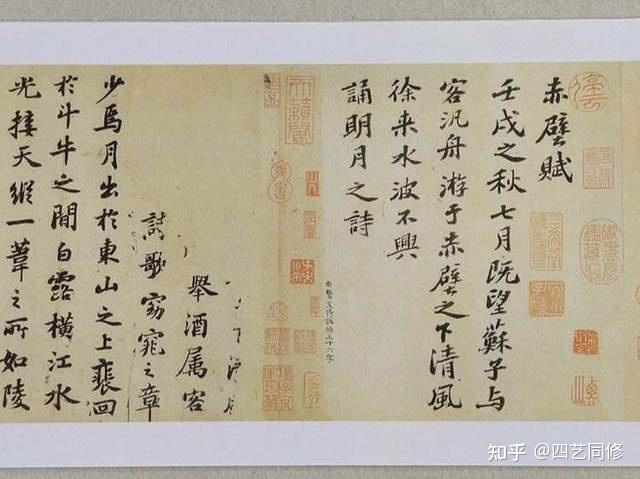 赤壁賦
壬戌之秋七月既望蘇子与
客汎舟游于赤壁之下清風
徐来水波不興
誦明月之詩
文待詔補三十六字
舉酒属客
詩歌窈窕之章
少焉月出於東山之上裵回
於斗牛之間白露橫江水
光接天縱一葦之所如陵
知乎 @四艺同修